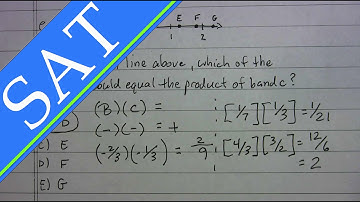 SAT
E F G
1 2
line above, which of the
ould equal the product of b and c?
D (B)(C) = [1/7][1/3] = 1/21
C) E (-)(-) = +
D) F (-2/3)(-1/3) = 2/9 [4/3][3/2] = 12/6
= 2
E) G